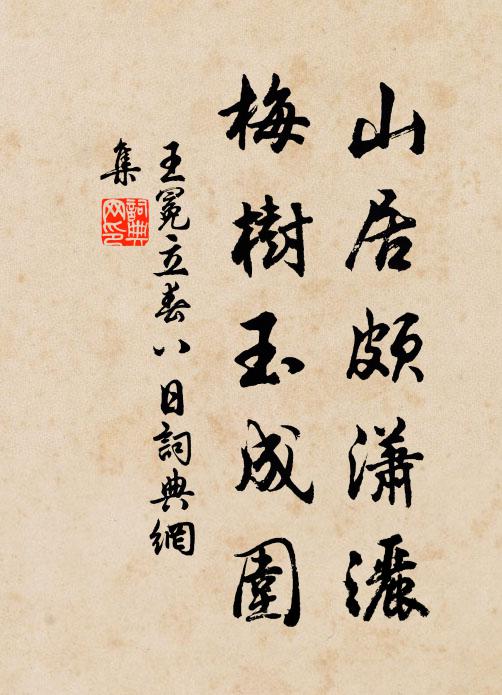 山居頗瀟灑
梅樹玉成圍
王冕立春八日詞典網
集
詞典網印